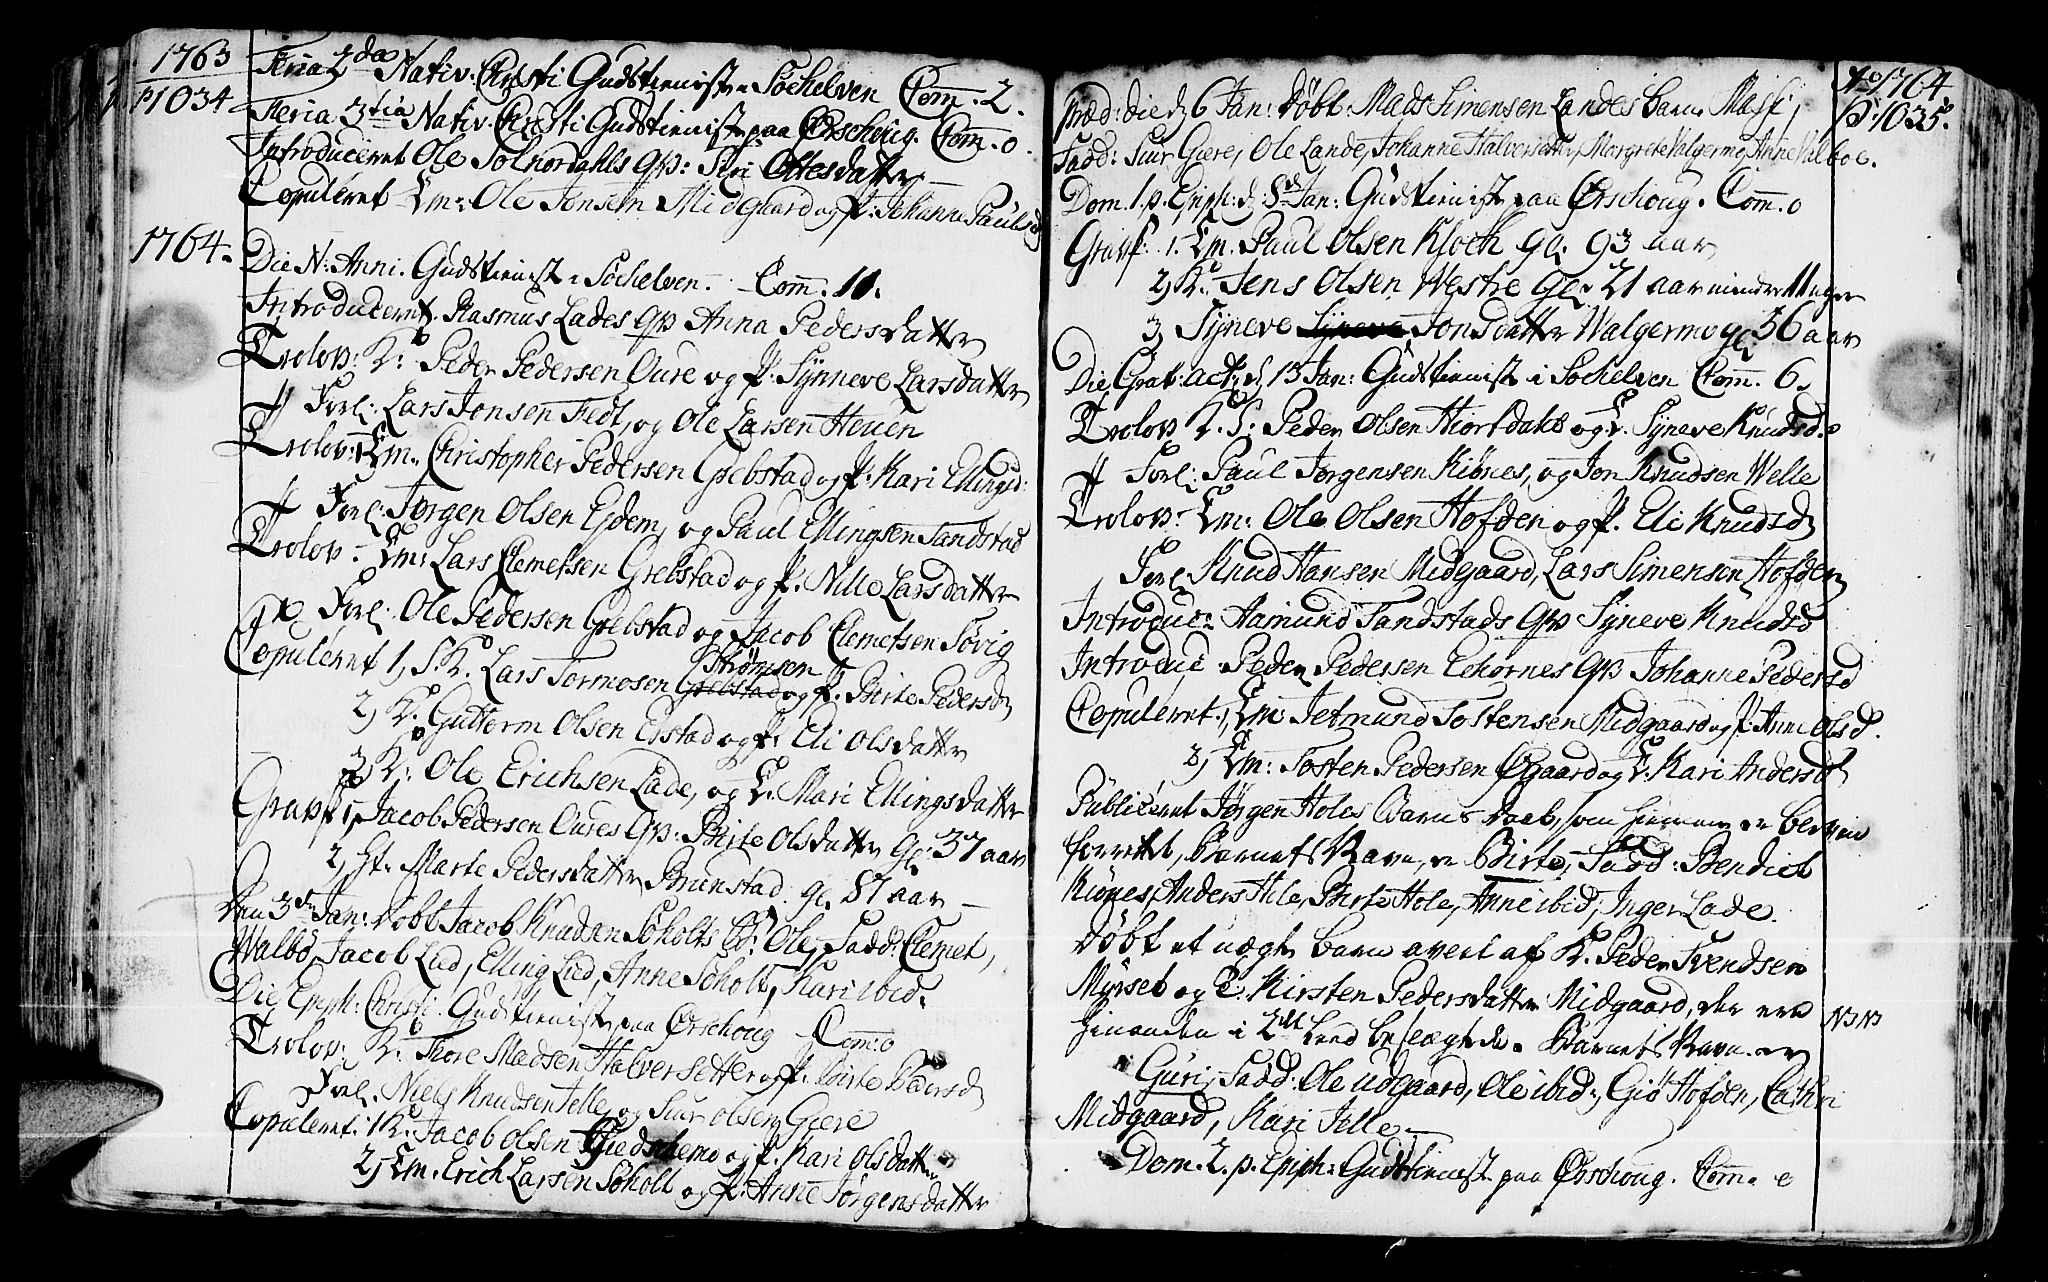 1763
p 1034
Feria 2da Nativ. Christi Gudstienist i Sochelven Com. 2.
Feria 3tia Nativ. Christi Gudstienist paa Ørschoug. Com. 0.
Introduceret Ole Solnordahls Qv: Siri Olsdatter
Copuleret Em: Ole Jonsen Midgaard og P. Johanne Paulsd
1764.
Die N: Anni. Gudstienist i Sochelven. Com. 11.
Introduceret. Rasmus Lades Qv Anna Pedersdatter
Trolov: K: Peder Pedersen Oure og P: Synneve Larsdatter
Forl: Lars Jonsen Fedt, og Ole Larsen Heuen
Trolov: Em: Christopher Pedersen Grebstad og P: Kari Ellingsd:
Forl: Jørgen Olsen Ejdem, og Paul Ellingsen Tandstad
Trolov: Em: Lars Clemetsen Grebstad og P: Nille Larsdatter
Forl: Ole Pedersen Grebstad og Jacob Clemetsen Søvig
Copuleret 1, S.K. Lars Tormosen Grebstad Strømsen og P. Birte Pedersd
2, K. Guttorm Olsen Erstad og P: Eli Olsdatter
3, K: Ole Erichsen Lade, og E. Mari Ellingsdatter
Gravf 1, Jacob Pedersen Oures Qv: Birte Olsdatter gl: 37 aar
2, St. Marte Pedersdatter Brunstad gl. 87 aar
Den 3de Jan: Døbt Jacob Knudsen Søholts B: Ole, Fadd: Clemet,
Walbø, Jacob Lied, Elling Lied, Anne Søholt, Kari ibid.
Die Epiph: Christi Gudstienist paa Ørschoug Com: 0
Trolov: K: Thore Madsen Halversetter og P. Birte Baarsd
Forl. Niels Knudsen Jelle og Siur Olsen Giere
Copuleret: 1 K: Jacob Olsen Giedschemo og P. Kari Olsdatter
2, Em. Erich Larsen Søholt og P: Anne Jørgensdatter
Ao 1764
p. 1035.
Præd: die d 6 Jan: Døbt Mads Simensen Landes barn Mass,
Fadd: Siur Giere, Ole Lande, Johanne Halversetter, Margrete Valgermo, Anne Valboe.
Dom. 1. p. Epiph: d 8d Jan: Gudstienist paa Ørschoug. Com. 0
Gravf: 1. Em. Paul Olsen Kloch gl. 93 aar
2, K. Jens Olsen Westre gl. 21 aar minder 11 uger
3, Syneve Syneve Jonsdatter Walgermo gl 56 aar
Die Grat: act: d, 13 Jan: Gudstienist i Sochelven Com. 6.
Trolov K. S: Peder Olsen Hiortdahl og E. Syneve Knudsd.
Forl: Paul Jørgensen Kiønes, og Jon Knudsen Welle
Trolov: Em: Ole Olsen Hofden og P. Eli Knudsd
Forl Knud Hansen Midgaard, Lars Simensen Hofden
Introduc: Aamund Tandstads Qv Syneve Knudsd
Introduc Peder Pedersen Echornes Qv Johanne Pedersd
Copuleret 1, Em Jetmund Tostensen Midgaard og P. Anne Olsd.
2, Em: Tosten Pedersen Øgaard og E. Kari Andersd
Publiceret Jørgen Holes Barns Daab, som hiemme er bleven
forrettet, Barnets Navn er Birte, Fadd: Bendict
Kiønes, Anders Hole, Birte Hole, Anne ibid, Inger Lade.
Døbt et uægte barn avlet af K. Peder Svendsen
Mørset og E: Kirsten Pedersdatter Midgaard, der ere
hinanden i 2det Leed beslægtede. Barnets Navn er
NB NB
Guri, Fadd: Ole Udgaard, Ole ibid:, Giø Hofden, Cathri
Midgaard, Kari Jelle
Dom. 2. p. Epiph: Gudstienist paa Ørschoug. Com. 0